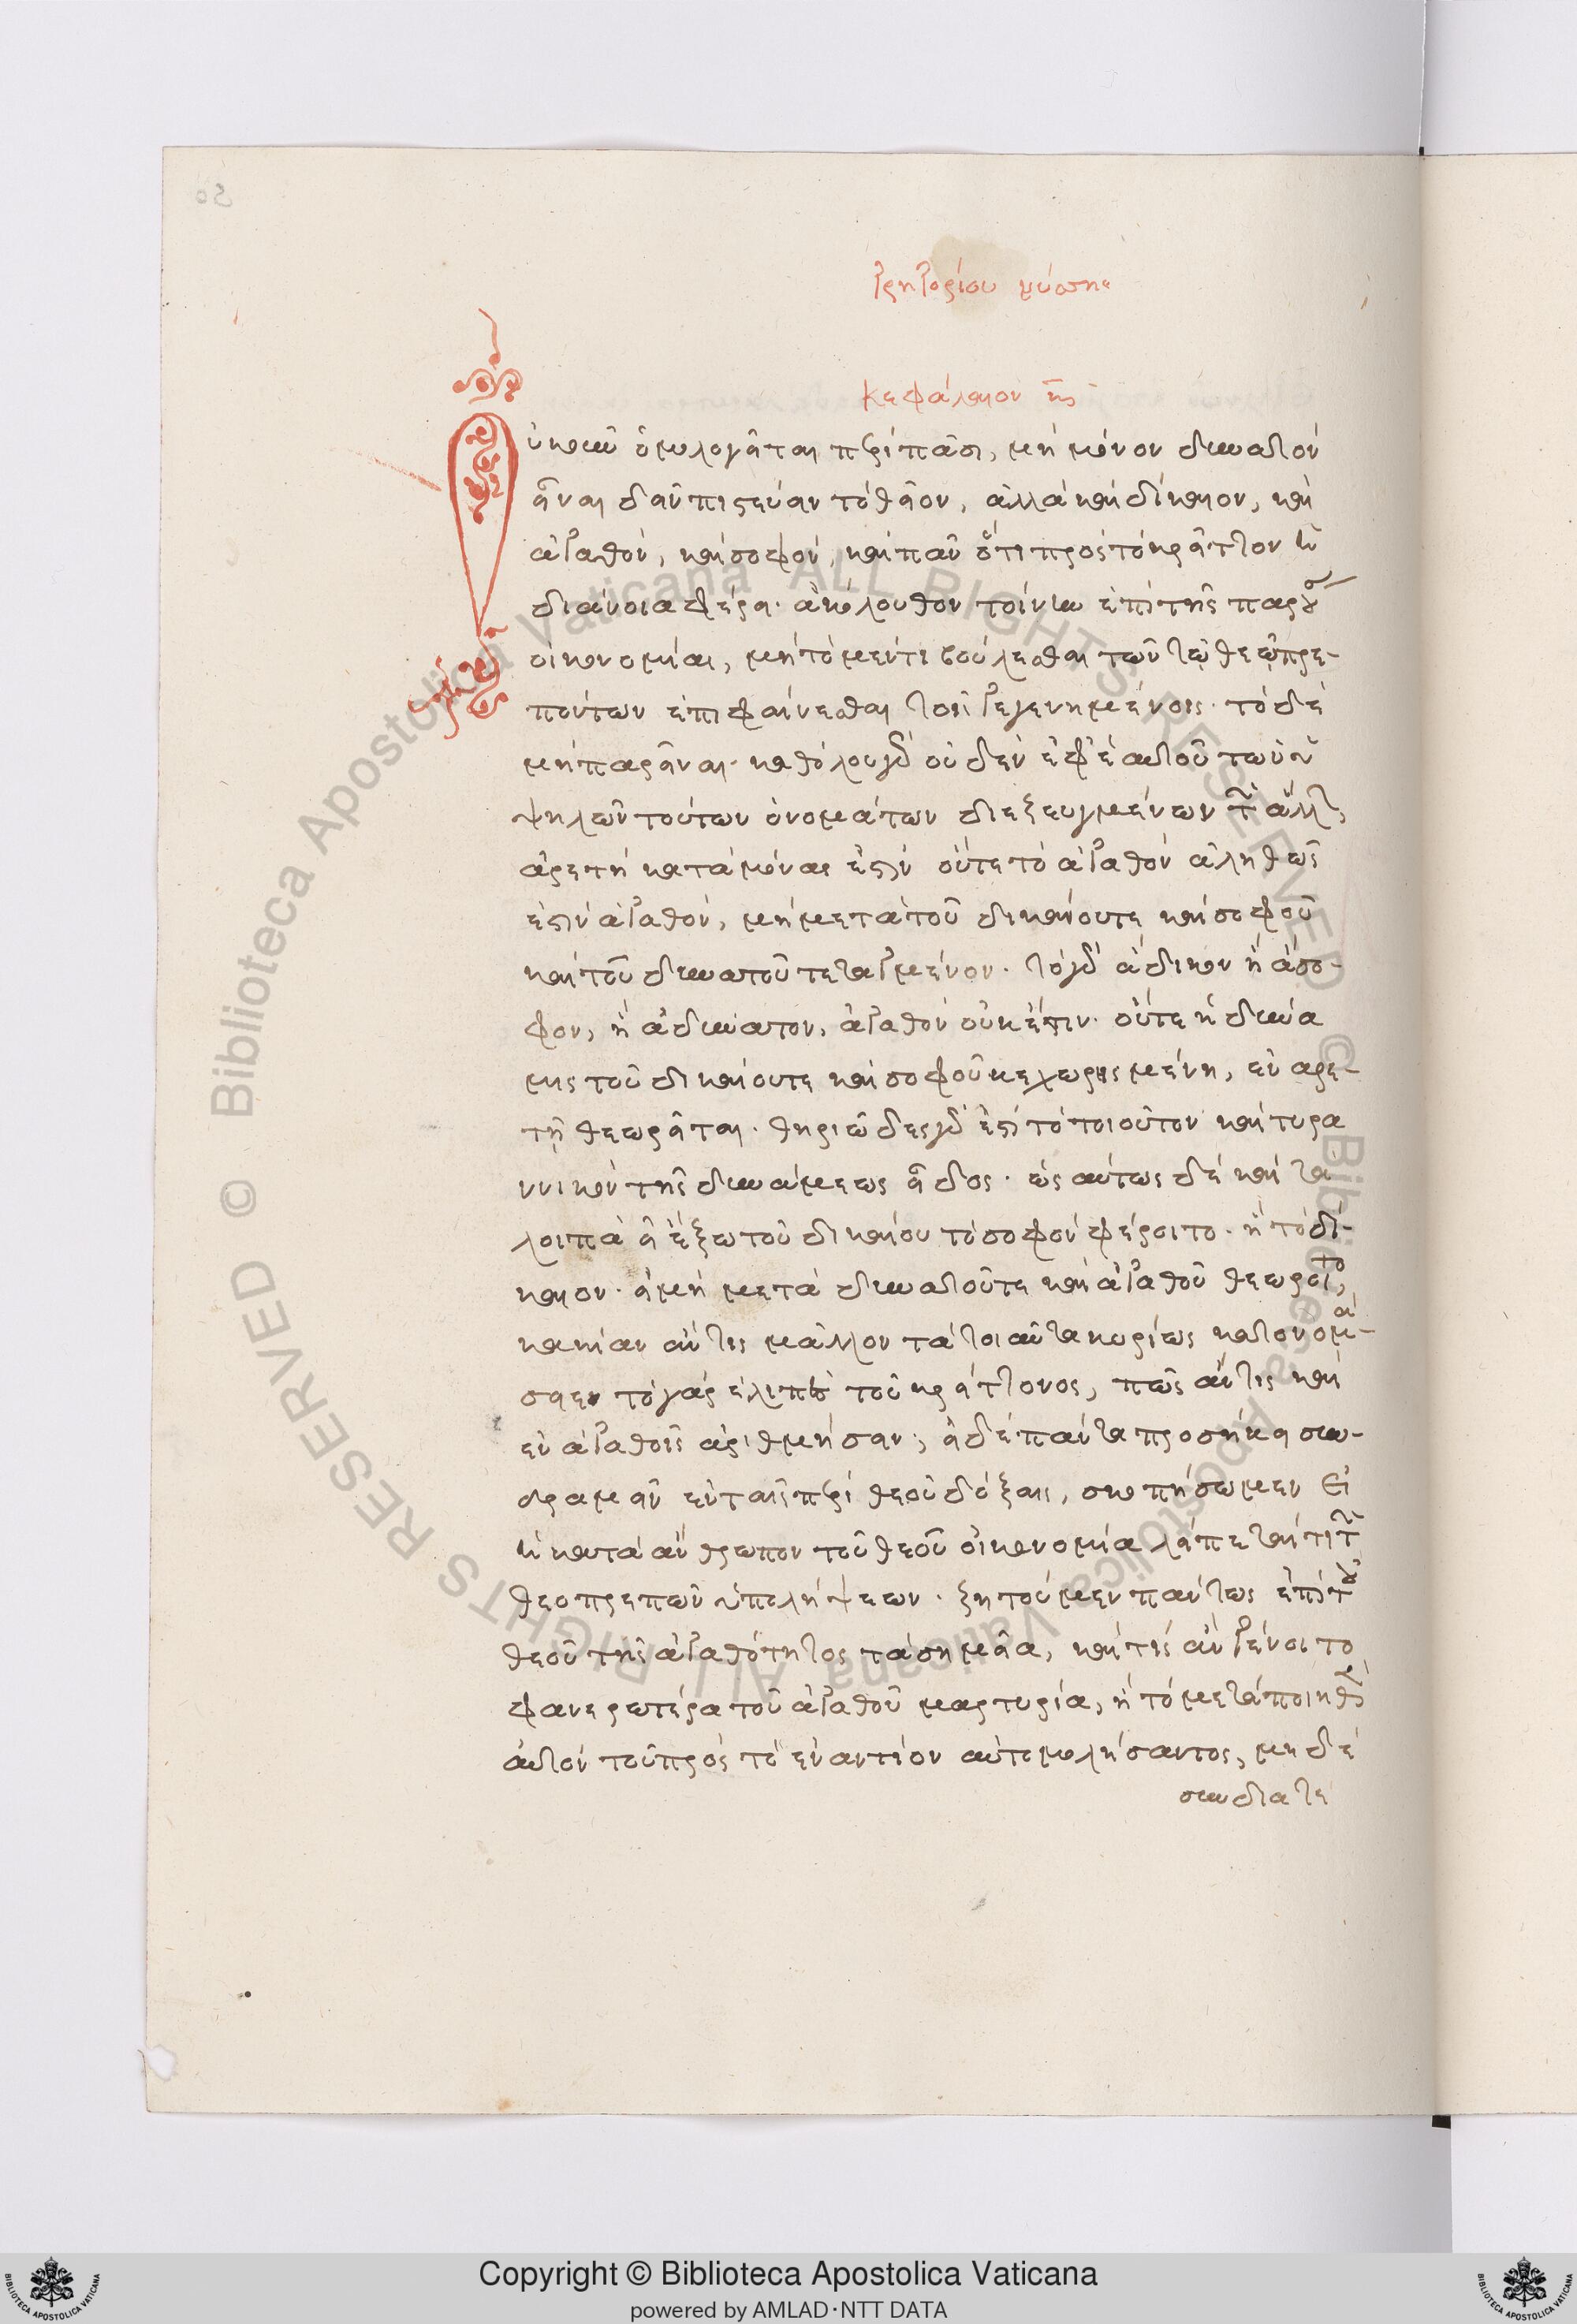 Γρηγορίου νύσης
Κεφάλαιον κς
ὐκοῦν ὁμολογεῖται περὶ πᾶσι, μὴ μόνον δυνατὸν
εἶναι δεῖν πιστεύειν τὸ θεῖον, ἀλλὰ καὶ δίκαιον, καὶ
ἀγαθὸν, καὶ σοφὸν, καὶ πᾶν ὅτι πρὸς τὸ κρεῖττον ἡ
διάνοια φέρει. ἀκόλουθον τοίνυν ἐπὶ τῆς παρού
οἰκονομίας, μὴ τὸ μέν τι βούλεσθαι τῶν τῷ θεῷ πρε-
πόντων ἐπιφαίνεσθαι τοῖς γεγενημένοις. τὸ δὲ
μὴ παρεῖναι. καθόλου γὰρ οὐδὲν ἐφ' ἑαυτοῦ τῶν ὑ
ψηλῶν τούτων ὀνομάτων διεζευγμένων τῶν ἄλλων
ἀρετὴ κατὰ μόνας ἐστὶν οὔτε τὸ ἀγαθὸν ἀληθῶς
ἐστὶν ἀγαθὸν, μὴ μετὰ τοῦ δικαίου τε καὶ σοφοῦ
καὶ τοῦ δυνατοῦ τεταγμένον. τὸ γὰρ ἄδικον ἢ ἄσο-
φον, ἢ ἀδύνατον, ἀγαθὸν οὐκ ἔστιν. οὔτε ἡ δύνα
μις τοῦ δικαίου τε καὶ σοφοῦ κεχωρισμένη, ἐν ἀρε-
τῇ θεωρεῖται. θηριῶδες γὰρ ἐστὶ τὸ τοιοῦτον καὶ τυρα
ννικὸν τῆς δυνάμεως εἶδος. ὡς αύτως δὲ καὶ τὰ
λοιπὰ εἰ ἔξω τοῦ δικαίου τὸ σοφὸν φέροιτο. ἢ τὸ δί-
καιον. εἰ μὴ μετὰ δυνατοῦ τε καὶ ἀγαθοῦ θεωροῖτο,
κακίαν ἄν τις μᾶλλον τὰ τοιαῦτα κυρίως κατονομά-
σειε τὸ γὰρ ἐλιπὲς τοῦ κρείττονος, πῶς ἄν τις καὶ
ἐν ἀγαθοῖς ἀριθμήσειν; εἰ δὲ πάντα προσήκει συν-
δραμεῖν ἐν ταῖς περὶ θεοῦ δόξαις, σκοπήσωμεν εἰ
ἡ κατὰ ἄνθρωπον τοῦ θεοῦ οἰκονομία λείπεται τινὶ τῶν
θεοπρεπῶν ὑπολήψεων. ζητοῦμεν πάντως ἐπὶ τοῦ
θεοῦ τῆς ἀγαθότητος τὰ σημεῖα, καὶ τίς ἂν γένοιτο
φανερωτέρα τοῦ ἀγαθοῦ μαρτυρία, ἢ τὸ μεταποιηθῆναι
αὐτὸν τοῦ πρὸς τὸ ἐναντίον αὐτομολήσαντος, μηδὲ
συνδιατε